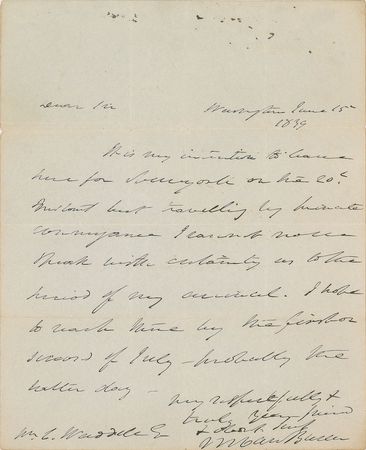 Dear Sir
Washington June 15th
1839
It is my intention to leave
here for New York on the 20th
Instant but travelling by private
conveyance I cannot now
speak with certainty as to the
period of my arrival. I hope
to reach there by the first or
second of July - probably the
latter day -
very respectfully &
truly Your friend
& obdt Servt
M Van Buren
Wm C. Waddell Esq